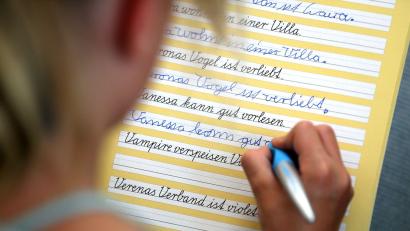 ist Laura.
in einer Villa.
wohnt in einer Villa.
ronas Vogel ist verliebt.
ronas Vogel ist verliebt.
anessa kann gut vorlesen
Vanessa kann gut
Vampire verspeisen
Verenas Verband ist violet